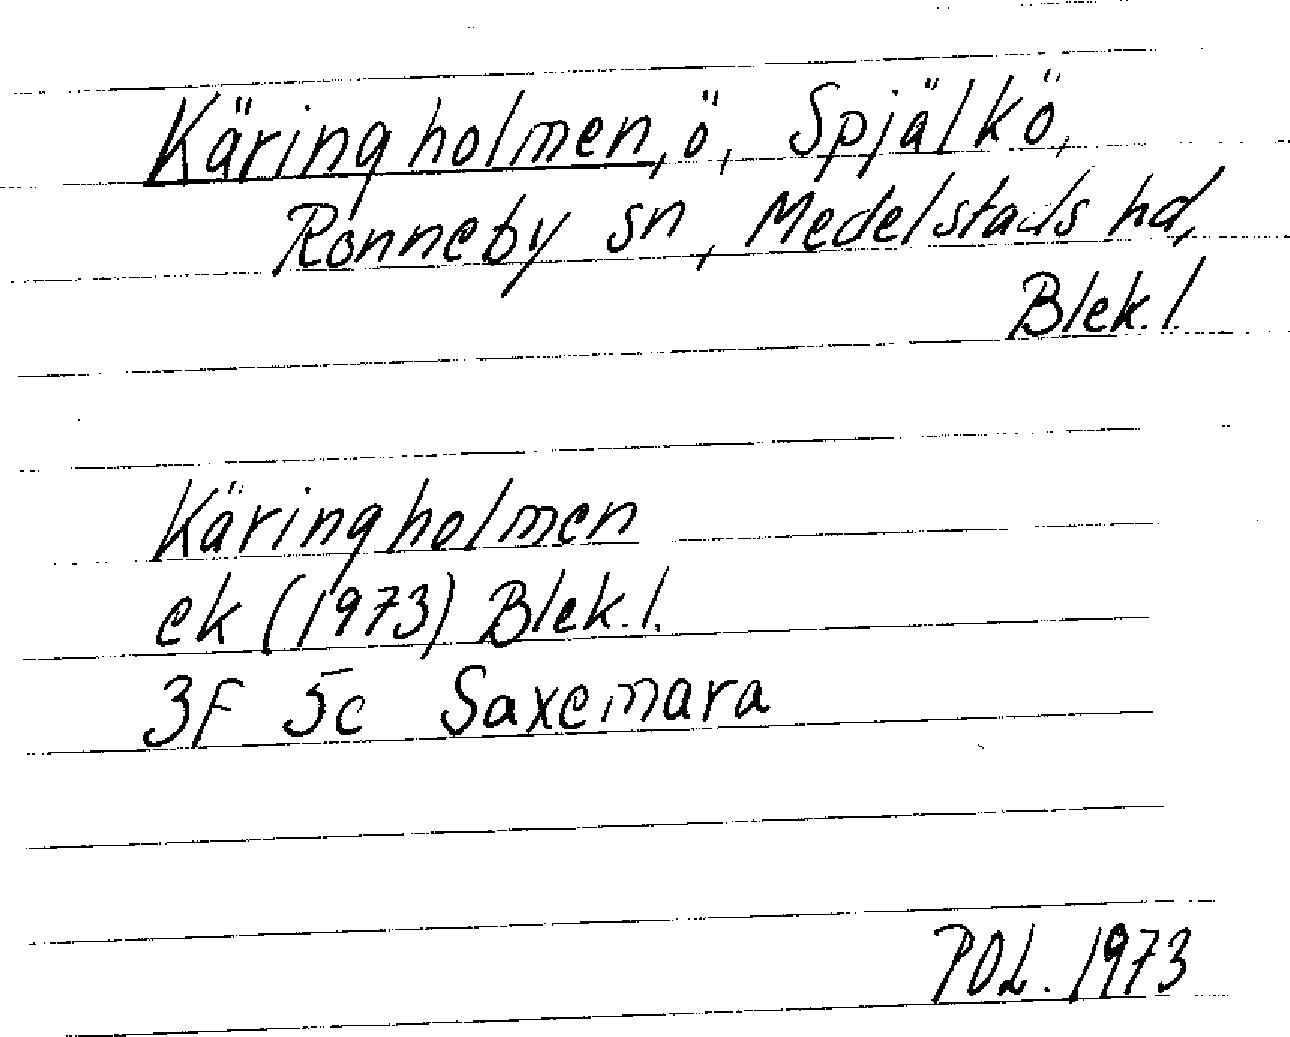 Käringholmen, ö, Spjälkö,
Ronneby sn, Medelstads hd,
Blek. l.
Käringholmen
ek (1973) Blek. l.
3F 5c Saxemara
POL. 1973